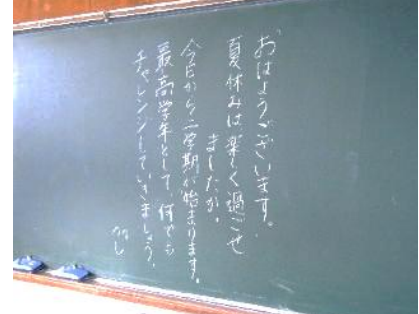 おはようございます。
夏休みは楽しく過ごせ
ましたか。
今日から二学期が始まります。
最高学年として、何でも
チャレンジしていきましょう。